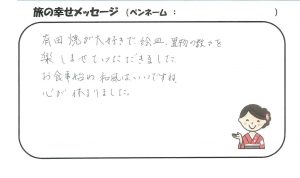 旅の幸せメッセージ （ペンネーム：　　　　　　　　）
有田焼が大好きで絵皿、置物の数々を
楽しませていただきました
お食事処の和風はいいですね
心が休まりました。